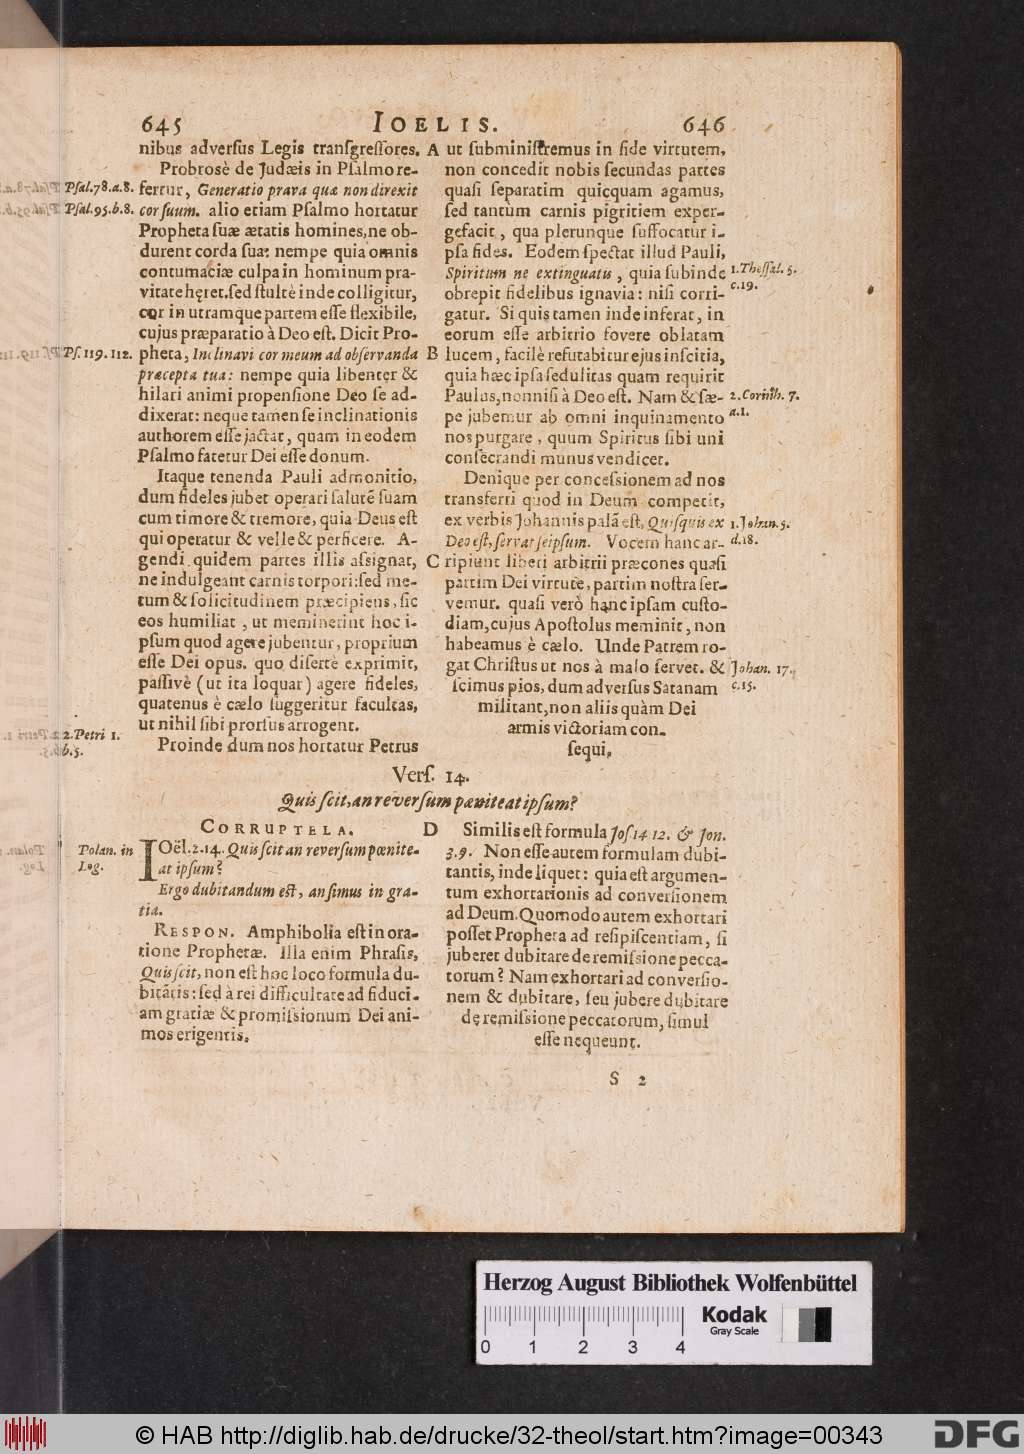 645 IOELIS. 646
nibus adverſus Legis tranſgreſſores.
Probrosè de Judæis in Pſalmo re-
Pſal.78.a.8. fertur, Generatio prava quæ non direxit
Pſal.95.b.8. cor ſuum. alio etiam Pſalmo hortatur
Propheta ſuæ ætatis homines, ne ob-
durent corda ſua: nempe quia omnis
contumaciæ culpa in hominum pra-
vitate hęret. ſed ſtultè inde colligitur,
cor in utramque partem eſſe flexibile,
cujus præparatio à Deo eſt. Dicit Pro-
Pſ.119.112. pheta, Inclinavi cor meum ad obſervanda
præcepta tua: nempe quia libenter &
hilari animi propenſione Deo ſe ad-
dixerat: neque tamen ſe inclinationis
authorem eſſe jactat, quam in eodem
Pſalmo fatetur Dei eſſe donum.
Itaque tenenda Pauli admonitio,
dum fideles jubet operari ſalutē ſuam
cum timore & tremore, quia Deus eſt
qui operatur & velle & perficere. A-
gendi quidem partes illis aſsignat,
ne indulgeant carnis torpori: ſed me-
tum & ſolicitudinem præcipiens, ſic
eos humiliat, ut meminerint hoc i-
pſum quod agere jubentur, proprium
eſſe Dei opus. quo diſertè exprimit,
paſſivè (ut ita loquar) agere fideles,
quatenus è cælo ſuggeritur facultas,
ut nihil ſibi prorſus arrogent.
2.Petri 1.
b.5.
Proinde dum nos hortatur Petrus
A ut ſubminiſtremus in fide virtutem,
non concedit nobis ſecundas partes
quaſi ſeparatim quicquam agamus,
ſed tantùm carnis pigritiem exper-
gefacit, qua plerunque ſuffocatur i-
pſa fides. Eodem ſpectat illud Pauli,
Spiritum ne extinguatis, quia ſubinde 1.Theſſal.5.
c.19.
obrepit fidelibus ignavia: niſi corri-
gatur. Si quis tamen inde inferat, in
eorum eſſe arbitrio fovere oblatam
B lucem, facilè refutabitur ejus inſcitia,
quia hæc ipſa ſedulitas quam requirit
Paulus, nonniſi à Deo eſt. Nam & ſæ- 2.Corinth. 7.
pe jubemur ab omni inquinamento a.1.
nos purgare, quum Spiritus ſibi uni
conſecrandi munus vendicet.
Denique per conceſsionem ad nos
transferri quod in Deum competit,
ex verbis Johannis palā eſt, Quiſquis ex 1.Johan.5.
Deo eſt, ſervat ſeipſum. Vocem hanc ar- d.18.
C ripiunt liberi arbitrii præcones quaſi
partim Dei virtute, partim noſtra ſer-
vemur. quaſi verò hanc ipſam cuſto-
diam, cujus Apoſtolus meminit, non
habeamus è cælo. Unde Patrem ro-
gat Chriſtus ut nos à malo ſervet. & Johan. 17.
ſcimus pios, dum adverſus Satanam c.15.
militant, non aliis quàm Dei
armis victoriam con-
ſequi.
Verſ. 14.
Quis ſcit, an reverſum pœniteat ipſum?
CORRUPTELA.
Polan. in
Log.
IOël.2.14. Quis ſcit an reverſum pœnite-
at ipſum?
Ergo dubitandum eſt, an ſimus in gra-
tia.
RESPON. Amphibolia eſt in ora-
tione Prophetæ. Illa enim Phraſis,
Quis ſcit, non eſt hoc loco formula du-
bitātis: ſed à rei difficultate ad fiduci-
am gratiæ & promiſsionum Dei ani-
mos erigentis.
D Similis eſt formula Joſ.14 12. & Jon.
3.9. Non eſſe autem formulam dubi-
tantis, inde liquet: quia eſt argumen-
tum exhortationis ad converſionem
ad Deum. Quomodo autem exhortari
poſſet Propheta ad reſipiſcentiam, ſi
juberet dubitare de remiſsione pecca-
torum? Nam exhortari ad converſio-
nem & dubitare, ſeu jubere dubitare
de remiſsione peccatorum, ſimul
eſſe nequeunt.
S 2
Herzog August Bibliothek Wolfenbüttel
0 1 2 3 4
Kodak
Gray Scale
© HAB http://diglib.hab.de/drucke/32-theol/start.htm?image=00343
DFG